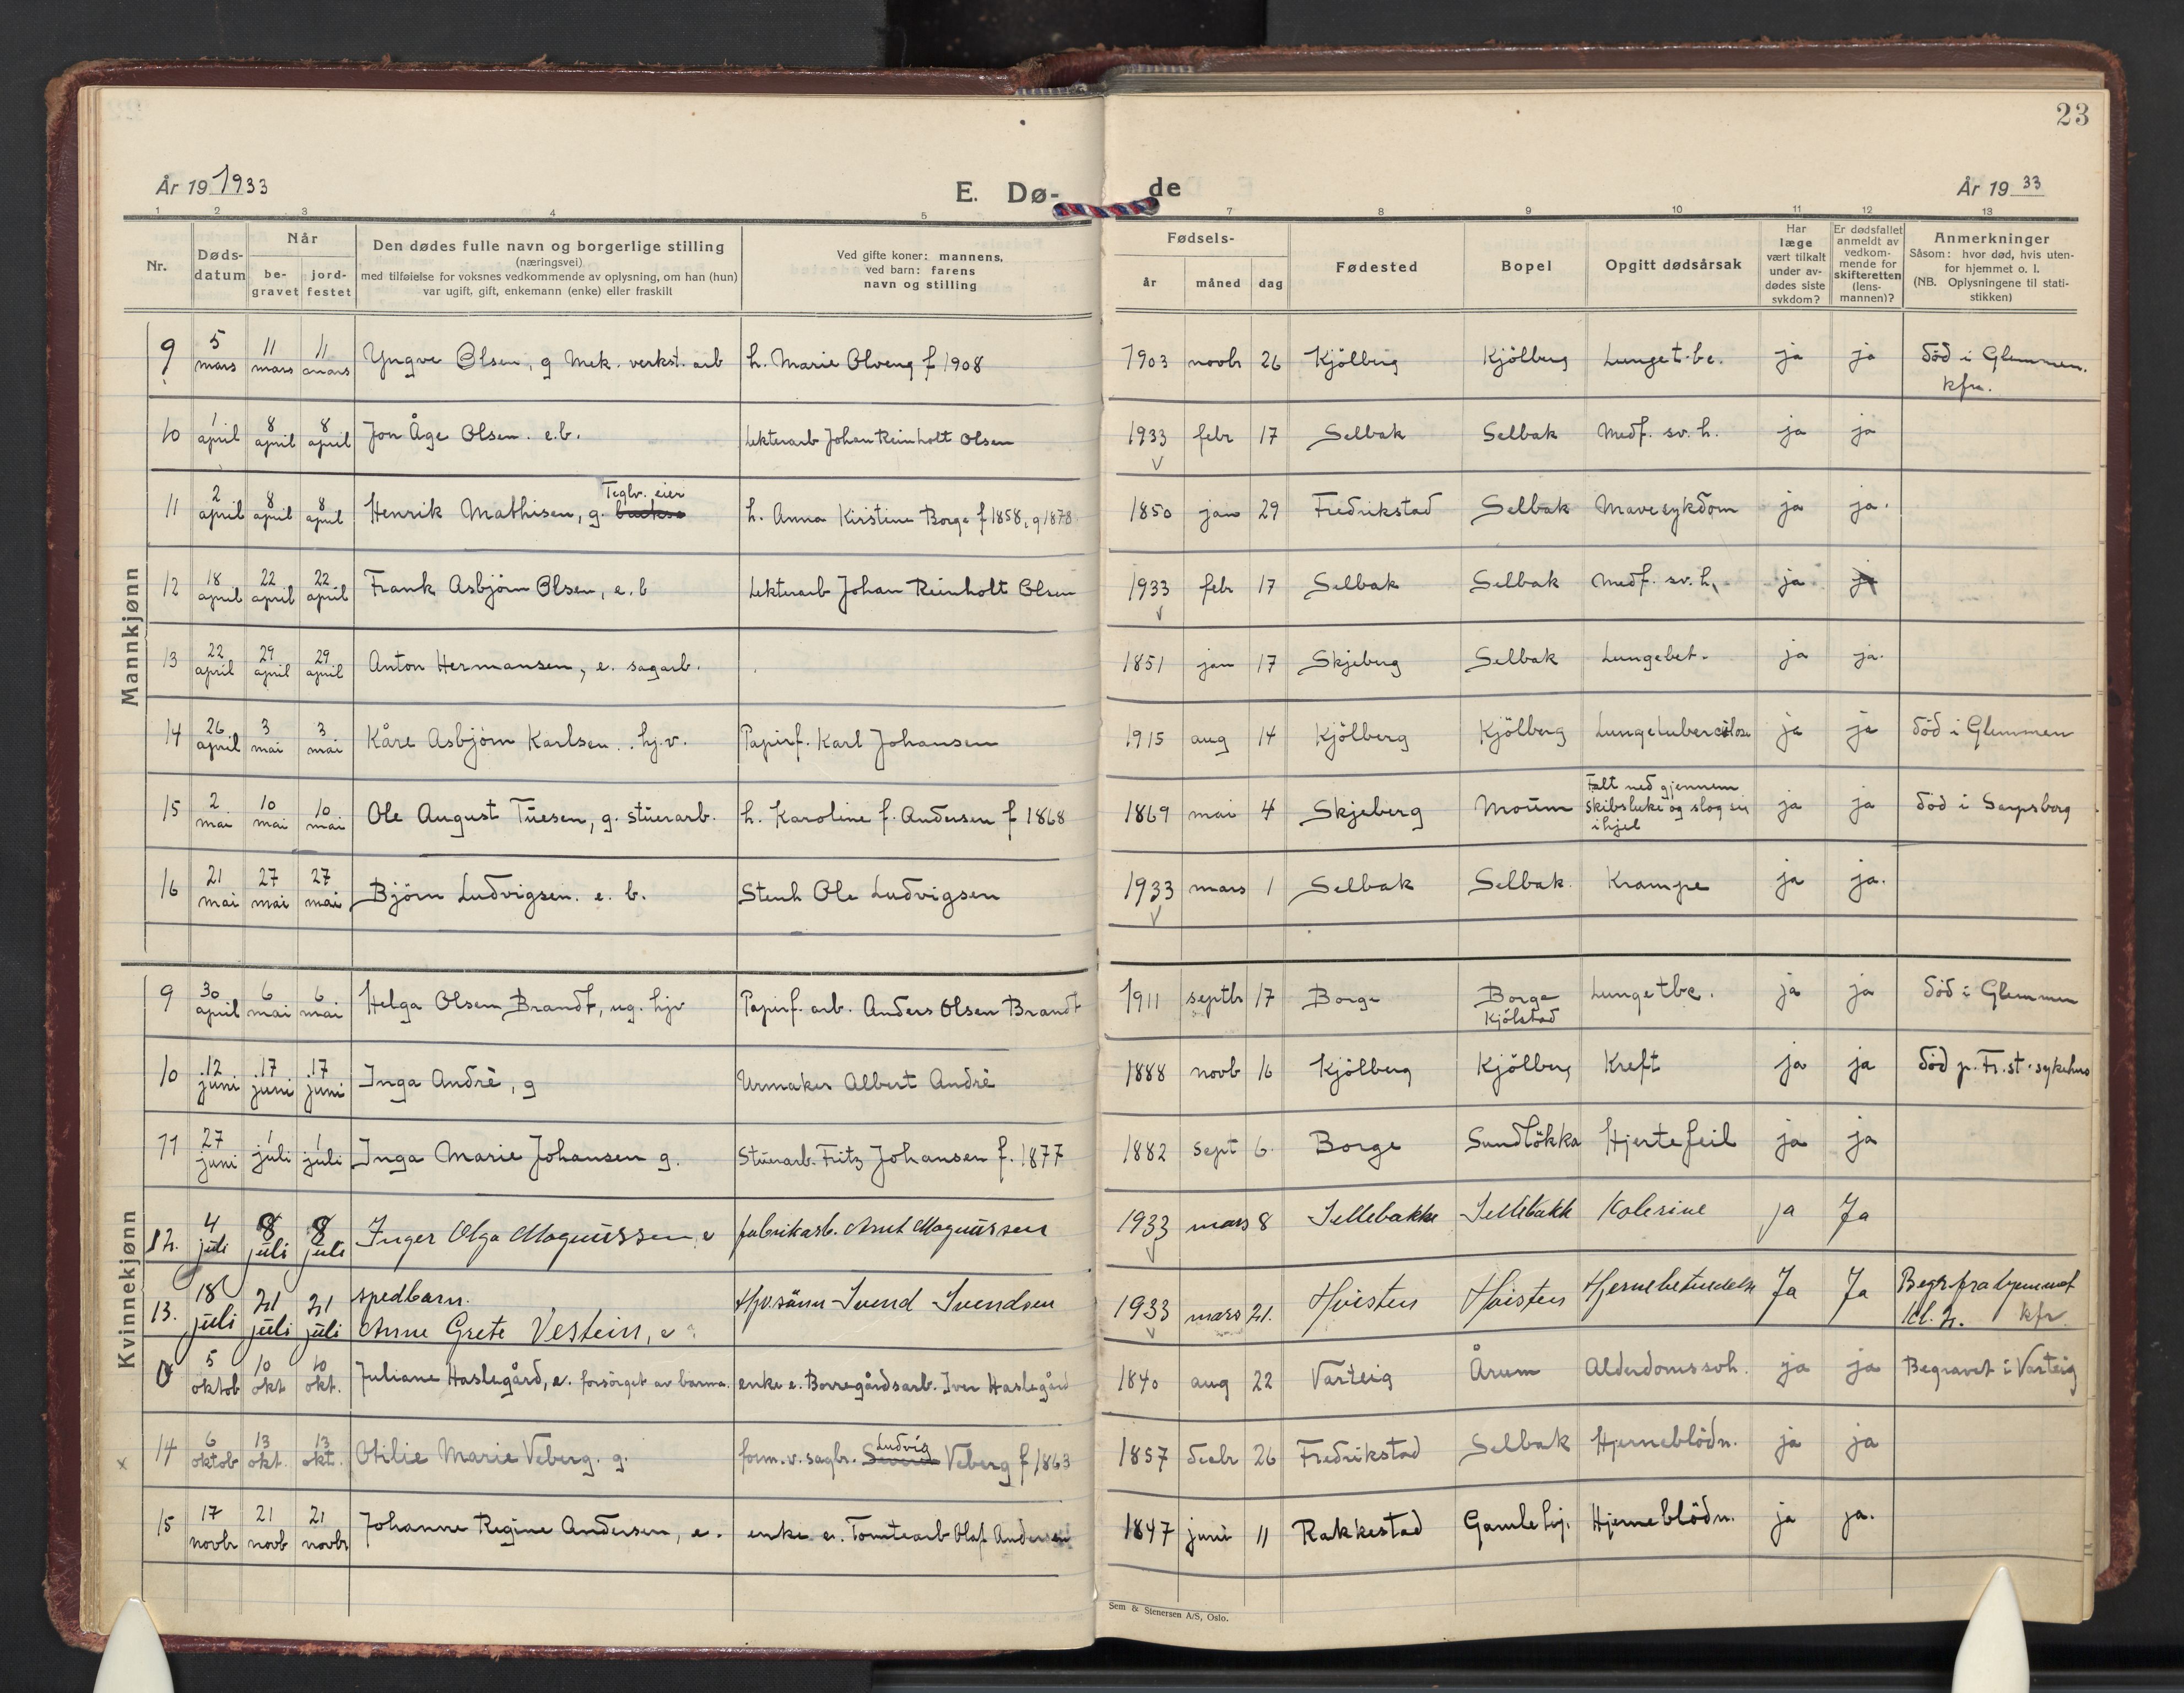 23
År 19 1933
E. Dø-
de
År 19 33
1 2 3 4 5 7 8 9 10 11 12 13
Nr.
Døds-
datum
Når
be-
gravet
jord-
festet
Den dødes fulle navn og borgerlige stilling
(næringsvei)
med tilføielse for voksnes vedkommende av oplysning, om han (hun)
var ugift, gift, enkemann (enke) eller fraskilt
Ved gifte koner: mannens,
ved barn: farens
navn og stilling
Fødsels-
år måned dag
Fødested
Bopel
Opgitt dødsårsak
Har
læge
vært tilkalt
under av-
dødes siste
sykdom?
Er dødsfallet
anmeldt av
vedkom-
mende for
skifteretten
(lens-
mannen)?
Anmerkninger
Såsom: hvor død, hvis uten-
for hjemmet o. l.
(NB. Oplysningene til stati-
stikken)
Mannkjønn
9 5 mars 11 mars 11 mars Yngve Olsen, g Mek. verkst. arb h. Marie Olveng f 1908 1903 novbr 26 Kjölberg Kjölberg Lunget.be. ja ja död i Glemmen.
kfr.
10 1 april 8 april 8 april Jon Åge Olsen. e.b. Lekterarb Johan Reinholt Olsen 1933 febr 17 Selbak Selbak Medf. sv. h. ja ja
Teglv. eier
11 2 april 8 april 8 april Henrik Mathisen, g. h. Anna Kirstine Borge f 1858, g 1878 1850 jan 29 Fredrikstad Selbak Mavesykdom ja ja.
12 18 april 22 april 22 april Frank Asbjörn Olsen, e.b Lekterarb Johan Reinholt Olsen 1933 febr 17 Selbak Selbak Medf. sv. h. ja ja
13 22 april 29 april 29 april Anton Hermansen, e. sagarb. 1851 jan 17 Skjeberg Selbak Lungebet. ja ja.
14 26 april 3 mai 3 mai Kåre Asbjörn Karlsen. hj.v. Papirf. Karl Johansen 1915 aug 14 Kjölberg Kjölberg Lungetuberculose ja ja död i Glemmen
15 2 mai 10 mai 10 mai Ole August Tuesen, g. stuerarb. h. Karoline f. Andersen f 1868 1869 mai 4 Skjeberg Moum Falt ned gjennem
skibsluke og slog sig
ihjel ja ja död i Sarpsborg
16 21 mai 27 mai 27 mai Björn Ludvigsen. e. b. Stenh Ole Ludvigsen 1933 mars 1 Selbak Selbak. Krampe ja ja.
Kvinnekjønn
9 30 april 6 mai 6 mai Helga Olsen Brandt, ug. hjv Papirf. arb. Anders Olsen Brandt 1911 septbr 17 Borge Borge
Kjölstad Lungetbc. ja ja död i Glemmen
10 12 juni 17 juni 17 juni Inga André, g Urmaker Albert André 1888 novb 16 Kjölberg Kjölberg Kreft ja ja död p. Fr.st. sykehus
11 27 juni 1 juli 1 juli Inga Marie Johansen g. Stuerarb. Fritz Johansen f. 1877 1882 sept 6. Borge Sundlökka Hjertefeil ja ja
12. 4 juli 8 juli 8 juli Inger Olga Magnussen, e fabrikarb. Arnt Magnussen 1933 mars 8 Sellebakke Sellebakk Kolerine ja Ja
13. 18 juli 21 juli 21 juli spedbarn.
Anne Grete Vestein, e Hjv. sönn Svend Svendsen 1933 mars 21. Hvisten Hvisten Hjernebetendelse Ja Ja Begr. fra hjemmet
kl. 2. kfr.
0 5 oktob 10 okt 10 okt. Juliane Haslegård, e. forsörget av barna. enke e. Borregårdsarb. Iver Haslegård 1840 aug 22 Varteig Årum Alderdomssvh. ja ja Begravet i Varteig
Ludvig
x 14 6 oktob 13 okt. 13 okt. Otilie Marie Veberg. g. form. v. sagbr. Veberg f 1863 1857 decbr 26 Fredrikstad Selbak Hjerneblödn. ja ja
15 17 novbr 21 novb 21 novbr Johanne Regine Andersen, e. enke e. Tomtearb Olaf Andersen 1847 juni 11 Rakkestad Gamlehj. Hjerneblödn. ja ja.
Sem & Stenersen A/S, Oslo.